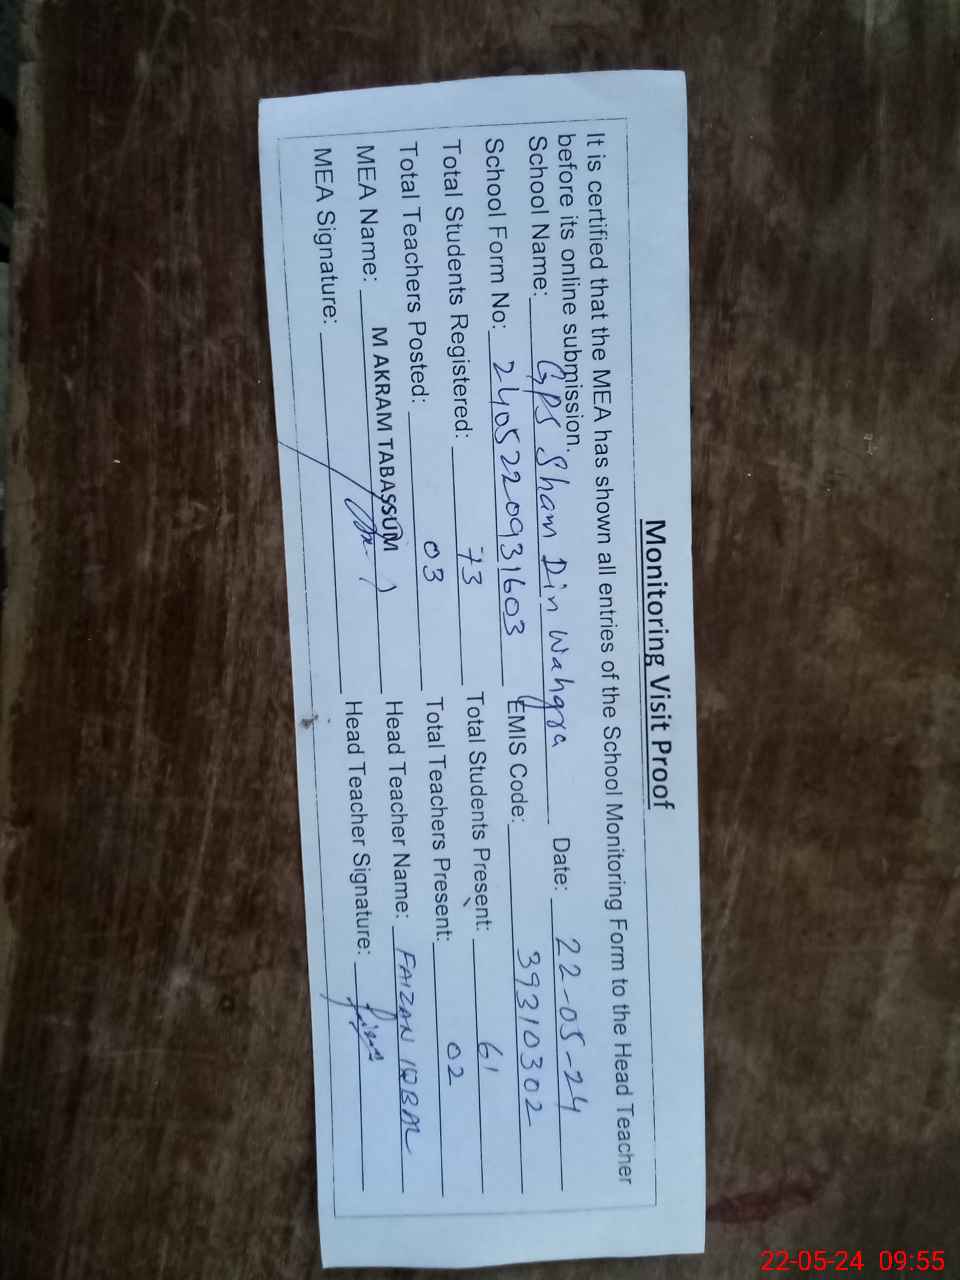 Monitoring Visit Proof
It is certified that the MEA has shown all entries of the School Monitoring Form to the Head Teacher
before its online submission.
School Name: GPS Sham Din Wahgra Date: 22-05-24
School Form No: 2405220931603 EMIS Code: 39310302
Total Students Registered: 73 Total Students Present: 61
Total Teachers Posted: 03 Total Teachers Present: 02
MEA Name: M AKRAM TABASSUM Head Teacher Name: FAIZAN IQBAL
MEA Signature: Head Teacher Signature:
22-05-24 09:55